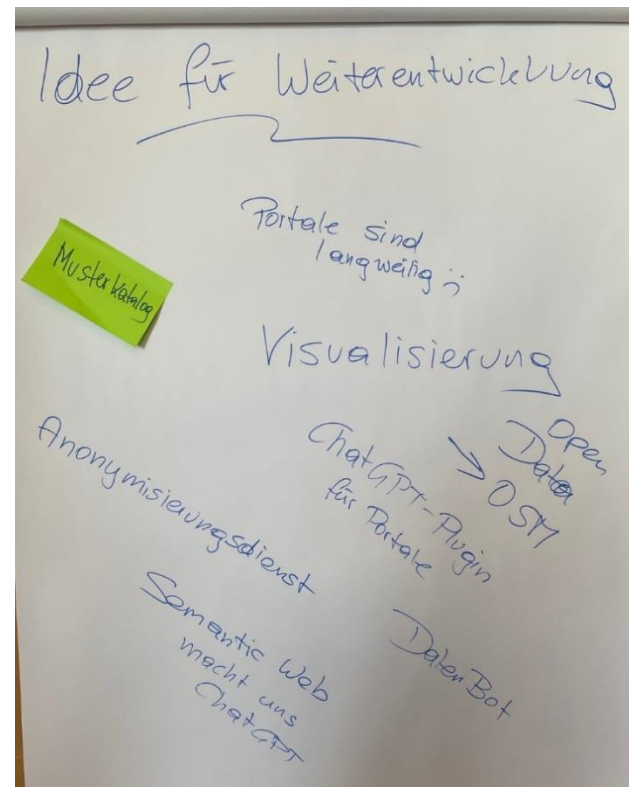 Idee für Weiterentwicklung
Portale sind
langweilig :)
Musterkatalog
Visualisierung
Open
Data
→ OSM
ChatGPT-Plugin
für Portale
Anonymisierungsdienst
Semantic Web
macht uns
ChatGPT
DatenBot